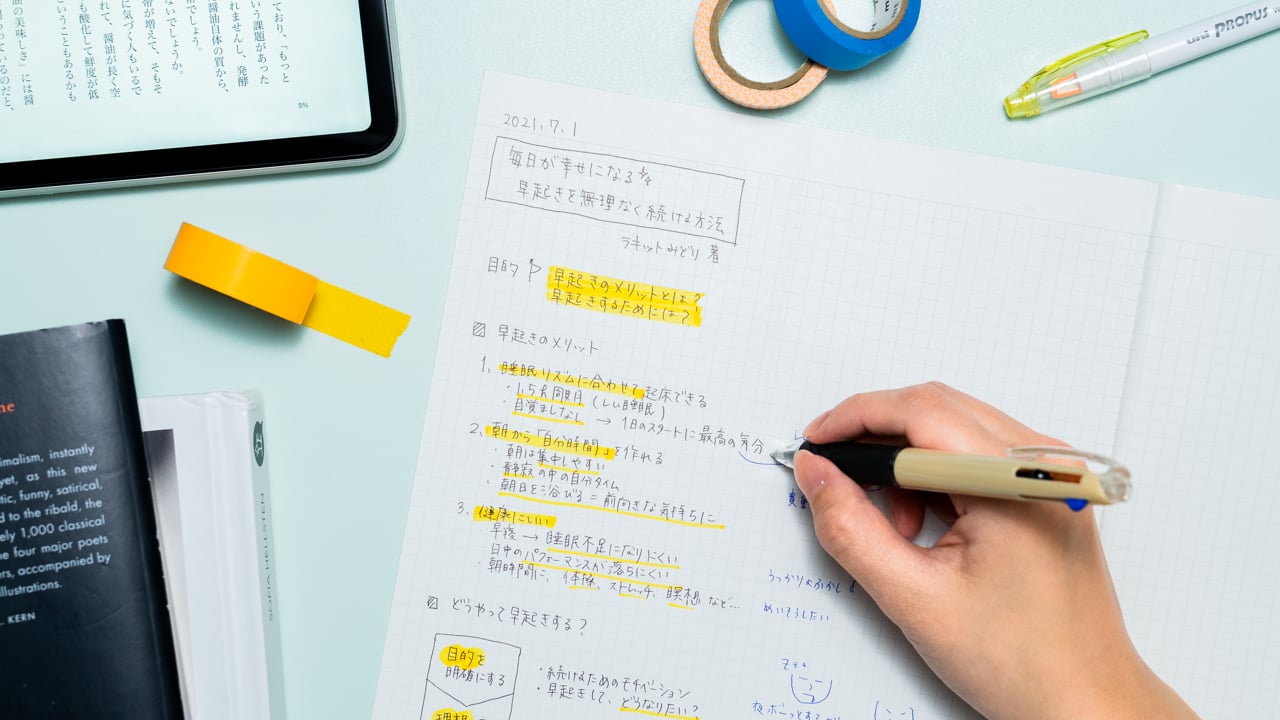 ており、「もっと
いう課題があった
れませんし、発酵
醤油自体の質から、
でしょう。
帯が増えて、そもそ
ないでしょうか。
に気づく人もいるで
れて、醤油が長く空
も酸化して鮮度が低
ということもあるかも
油の美味しさ」には醤
5%
uni PROPUS
2021.7.1
毎日が幸せになる
早起きを無理なく続ける方法
ラキットみどり 著
目的
早起きのメリットとは?
早起きするためには?
早起きのメリット
1、睡眠リズムに合わせて起床できる
・1.5h周期(レム睡眠)
・目覚ましなし → 1日のスタートに最高の気分
2、朝から「自分時間」を作れる
・朝は集中しやすい
・静寂の中の自分タイム
・朝日を浴びる = 前向きな気持ちに
3、健康にいい
早寝 → 睡眠不足になりにくい
日中のパフォーマンスが落ちにくい
・朝時間に、体操、ストレッチ、瞑想など…
うっかり夜ふかし
めいそうしたい
どうやって早起きする?
目的を
明確にする
・続けるためのモチベーション
・早起きして、どうなりたい?
理想
zzz
夜ボーっとする
me
nimalism, instantly
yet, as this new
tic, funny, satirical,
d to the ribald, the
ely 1,000 classical
he four major poets
ers, accompanied by
illustrations.
L. KERN
SOFIA HELLSTEN